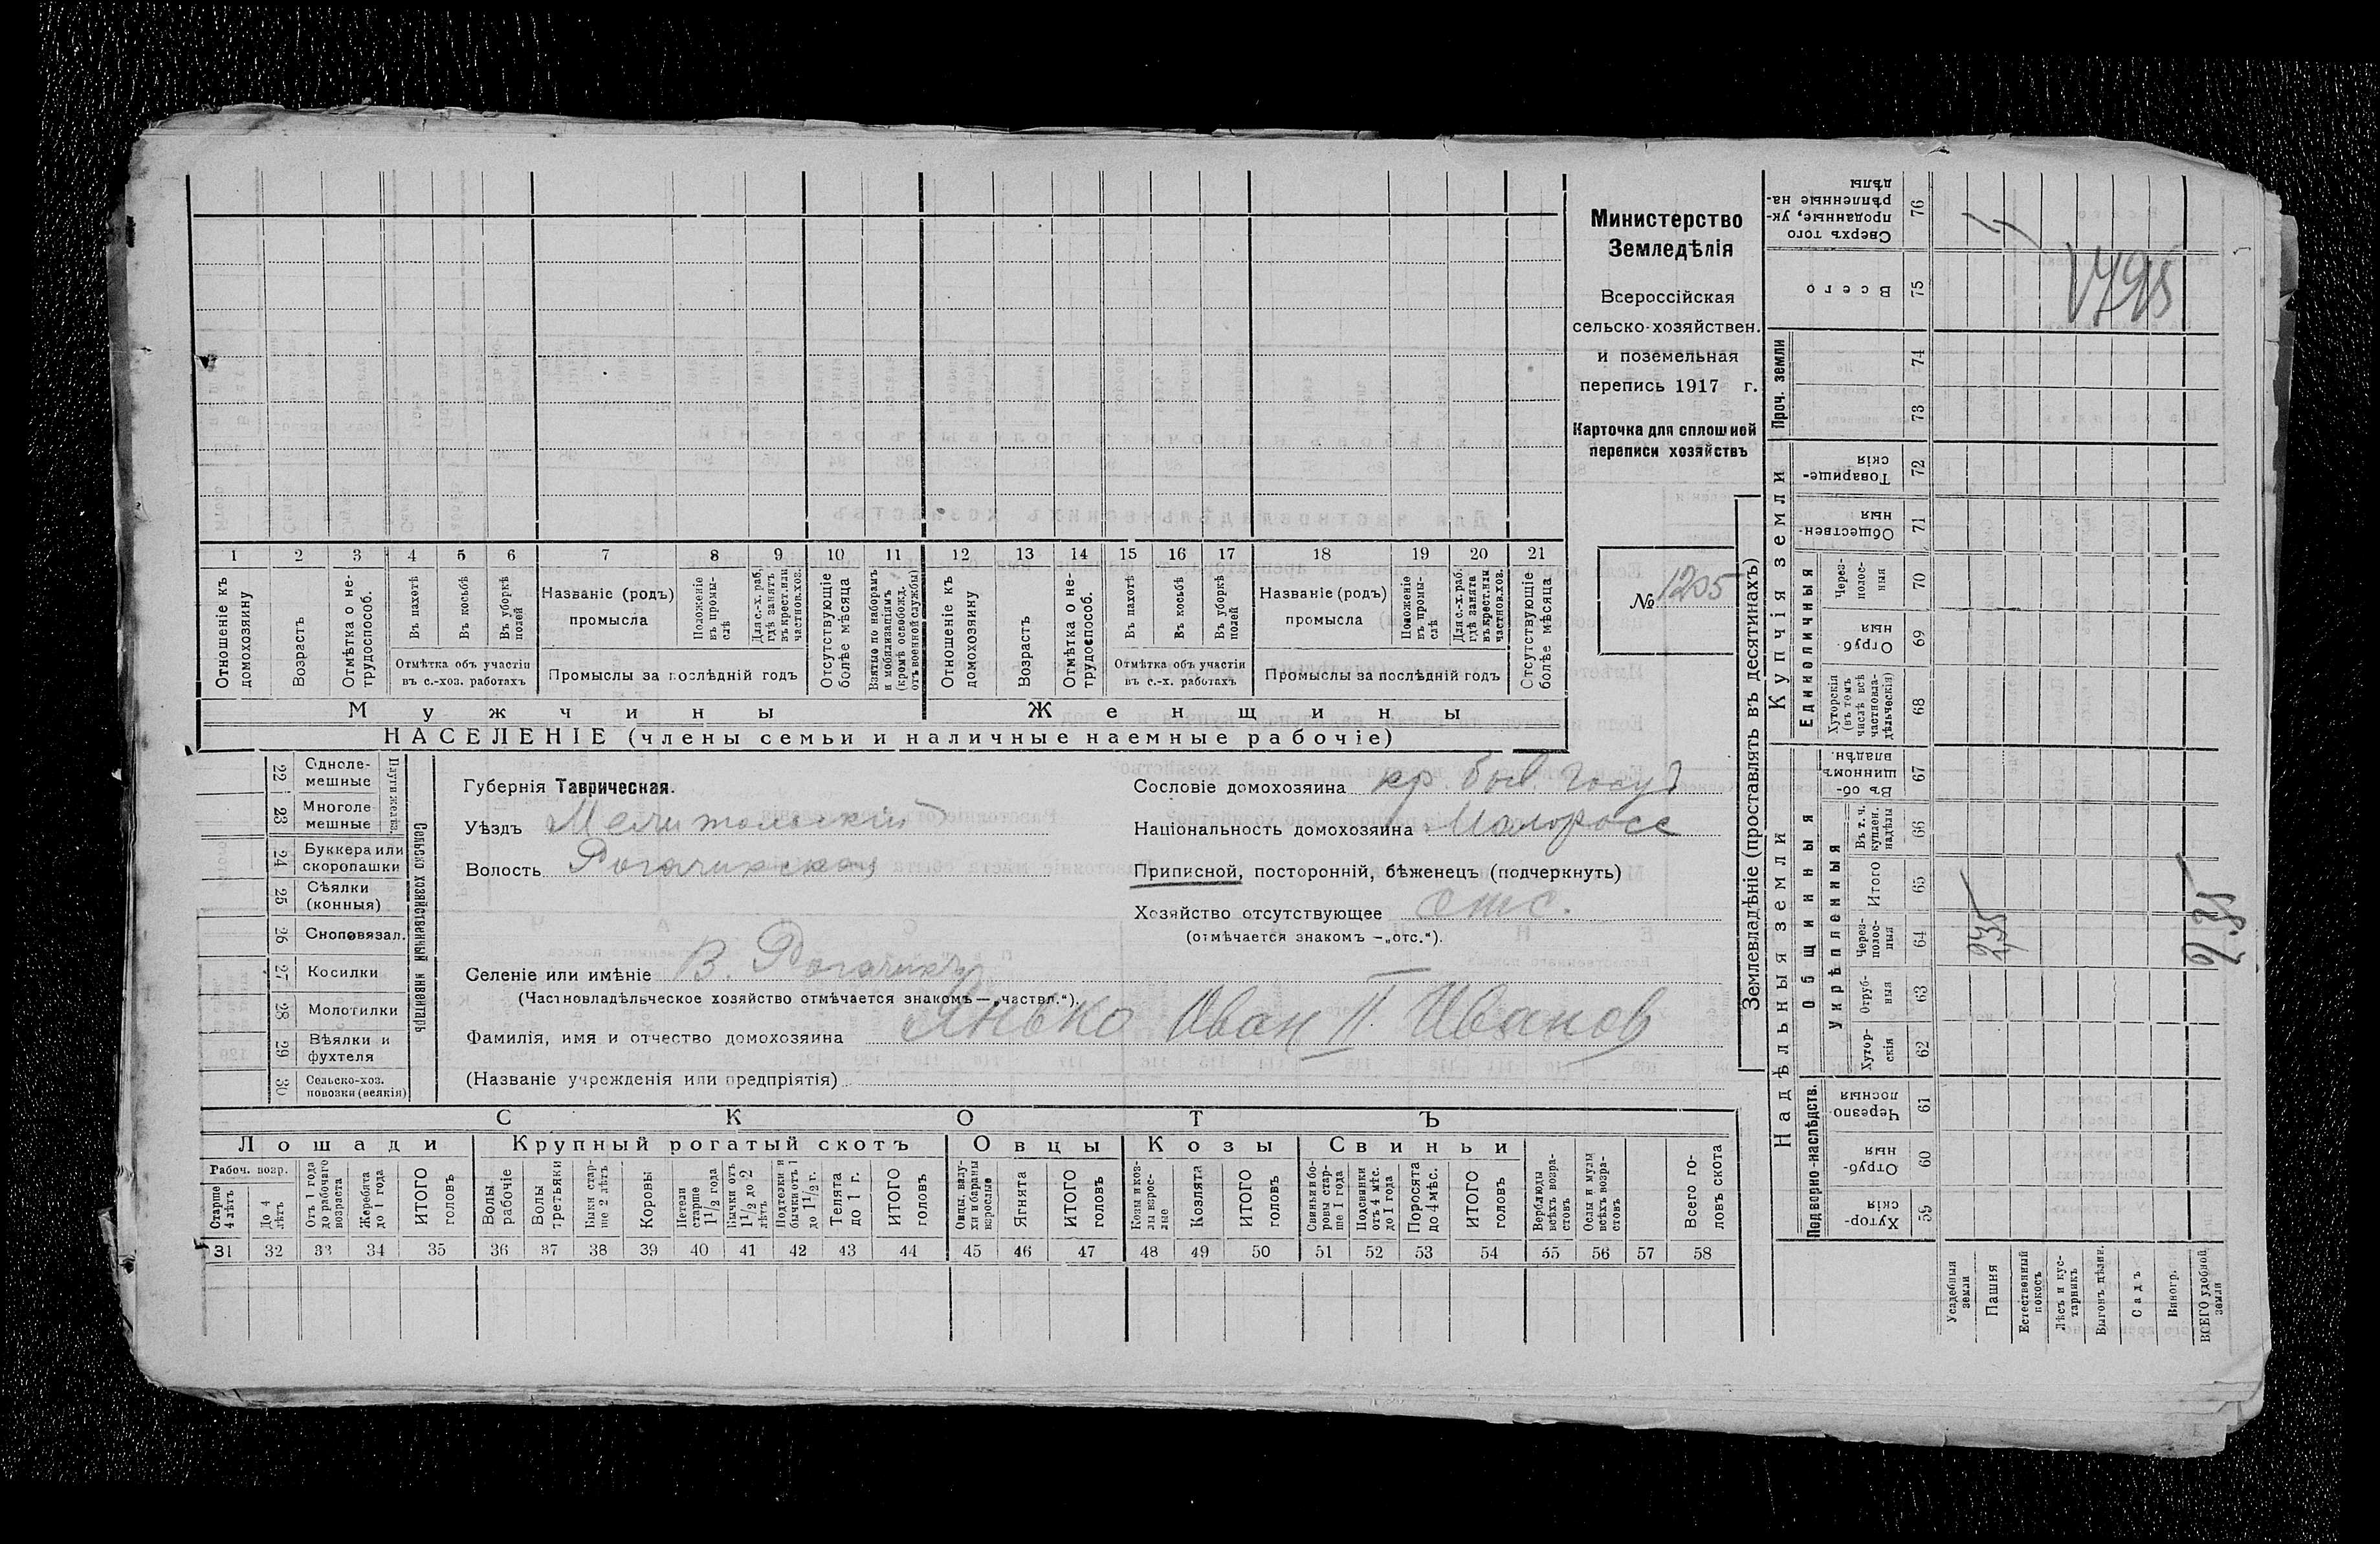 Министерство
Земледѣлія
Всероссійская
сельско-хозяйствен.
и поземельная
перепись 1917 г.
Карточка для сплошной
переписи хозяйствъ
№ 1205
1 2 3 4 5 6 7 8 9 10 11 12 13 14 15 16 17 18 19 20 21
Отношеніе къ домохозяину
Возрастъ
Отмѣтка о не-трудоспособ.
Въ пахотѣ
Въ косьбѣ
Въ уборкѣ полей
Отмѣтка объ участіи
въ с.-хоз. работахъ
Названіе (родъ)
промысла
Положеніе въ промы-слѣ
Для с.-х. раб. гдѣ занятъ въ крест. или частнов. хоз.
Промыслы за послѣдній годъ
Отсутствующіе болѣе мѣсяца
Взятые по наборамъ и мобилизаціямъ (кромѣ освобожд. отъ военной службы)
Отношеніе къ домохозяину
Возрастъ
Отмѣтка о не-трудоспособ.
Въ пахотѣ
Въ косьбѣ
Въ уборкѣ полей
Отмѣтка объ участіи
въ с.-х. работахъ
Названіе (родъ)
промысла
Положеніе въ промы-слѣ
Для с.-х. раб. гдѣ занята въ крест. или частнов. хоз.
Промыслы за послѣдній годъ
Отсутствующіе болѣе мѣсяца
Мужчины Женщины
НАСЕЛЕНІЕ (члены семьи и наличные наемные рабочіе)
22 Одноле-мешные
23 Многоле мешные
Плуги желѣз.
24 Буккера или скоропашки
25 Сѣялки (конныя)
26 Сноповязал.
27 Косилки
28 Молотилки
29 Вѣялки и фухтеля
30 Сельско-хоз. повозки (всякія)
Сельско хозяйственный инвентарь
Губернія Таврическая.
Уѣздъ Мелитопольскій
Волость Рогачикская
Селеніе или имѣніе В. Рогачикъ
(Частновладѣльческое хозяйство отмѣчается знакомъ —„частвл.“).
Фамилія, имя и отчество домохозяина Янько Иван II Иванов
(Названіе учрежденія или предпріятія)
Сословіе домохозяина кр. быв. госуд
Національность домохозяина Малоросс
Приписной, посторонній, бѣженецъ (подчеркнуть)
Хозяйство отсутствующее отс.
(отмѣчается знакомъ —„отс.“).
СКОТЪ
Лошади Крупный рогатый скотъ Овцы Козы Свиньи
Рабоч. возр.
Старше 4 лѣтъ
До 4 лѣтъ
Отъ 1 года до рабочаго возраста
Жеребята до 1 года
ИТОГО головъ
Волы рабочіе
Волы третьяки
Быки стар-ше 2 лѣтъ
Коровы
Нетели старше 1 1/2 года
Бычки отъ 1 1/2 до 2 лѣтъ
Подтелки и бычки отъ 1 до 1 1/2 г.
Телята до 1 г.
ИТОГО головъ
Овцы, валу-хи и бараны взрослые
Ягнята
ИТОГО головъ
Козы и коз-лы взрос-лые
Козлята
ИТОГО головъ
Свиньи и бо-ровы стар-ше 1 года
Подсвинки отъ 4 мѣс. до 1 года
Поросята до 4 мѣс.
ИТОГО головъ
Верблюды всѣхъ возра-стовъ
Ослы и мулы всѣхъ возра-стовъ
Всего го-ловъ скота
31 32 33 34 35 36 37 38 39 40 41 42 43 44 45 46 47 48 49 50 51 52 53 54 55 56 57 58
Землевладѣніе (проставлять въ десятинахъ)
Надѣльныя земли
Купчія земли
Проч. земли
Подворно-наслѣдств.
Общинныя
Укрѣпленныя
Единоличныя
Хутор-скія 59
Отруб-ныя 60
Черезпо лосныя 61
Хутор-скія 62
Отруб-ныя 63
Через-полос-ныя 64
Итого 65
Въ т. ч. куплен. надѣлы 66
Въ об-щинномъ владѣн. 67
Хуторскія (въ томъ числѣ всѣ частновла-дѣльческія) 68
Отруб-ныя 69
Через-полос-ныя 70
Обществен-ныя 71
Товарище-скія 72
73
74
Всего 75
Сверхъ того проданные, ук-рѣпленные на-дѣлы 76
Усадебныя земли
Пашня
Естественный покосъ
Лѣсъ и кус-тарникъ
Выгонъ дѣлин.
Садъ
Виногр.
ВСЕГО удобной земли